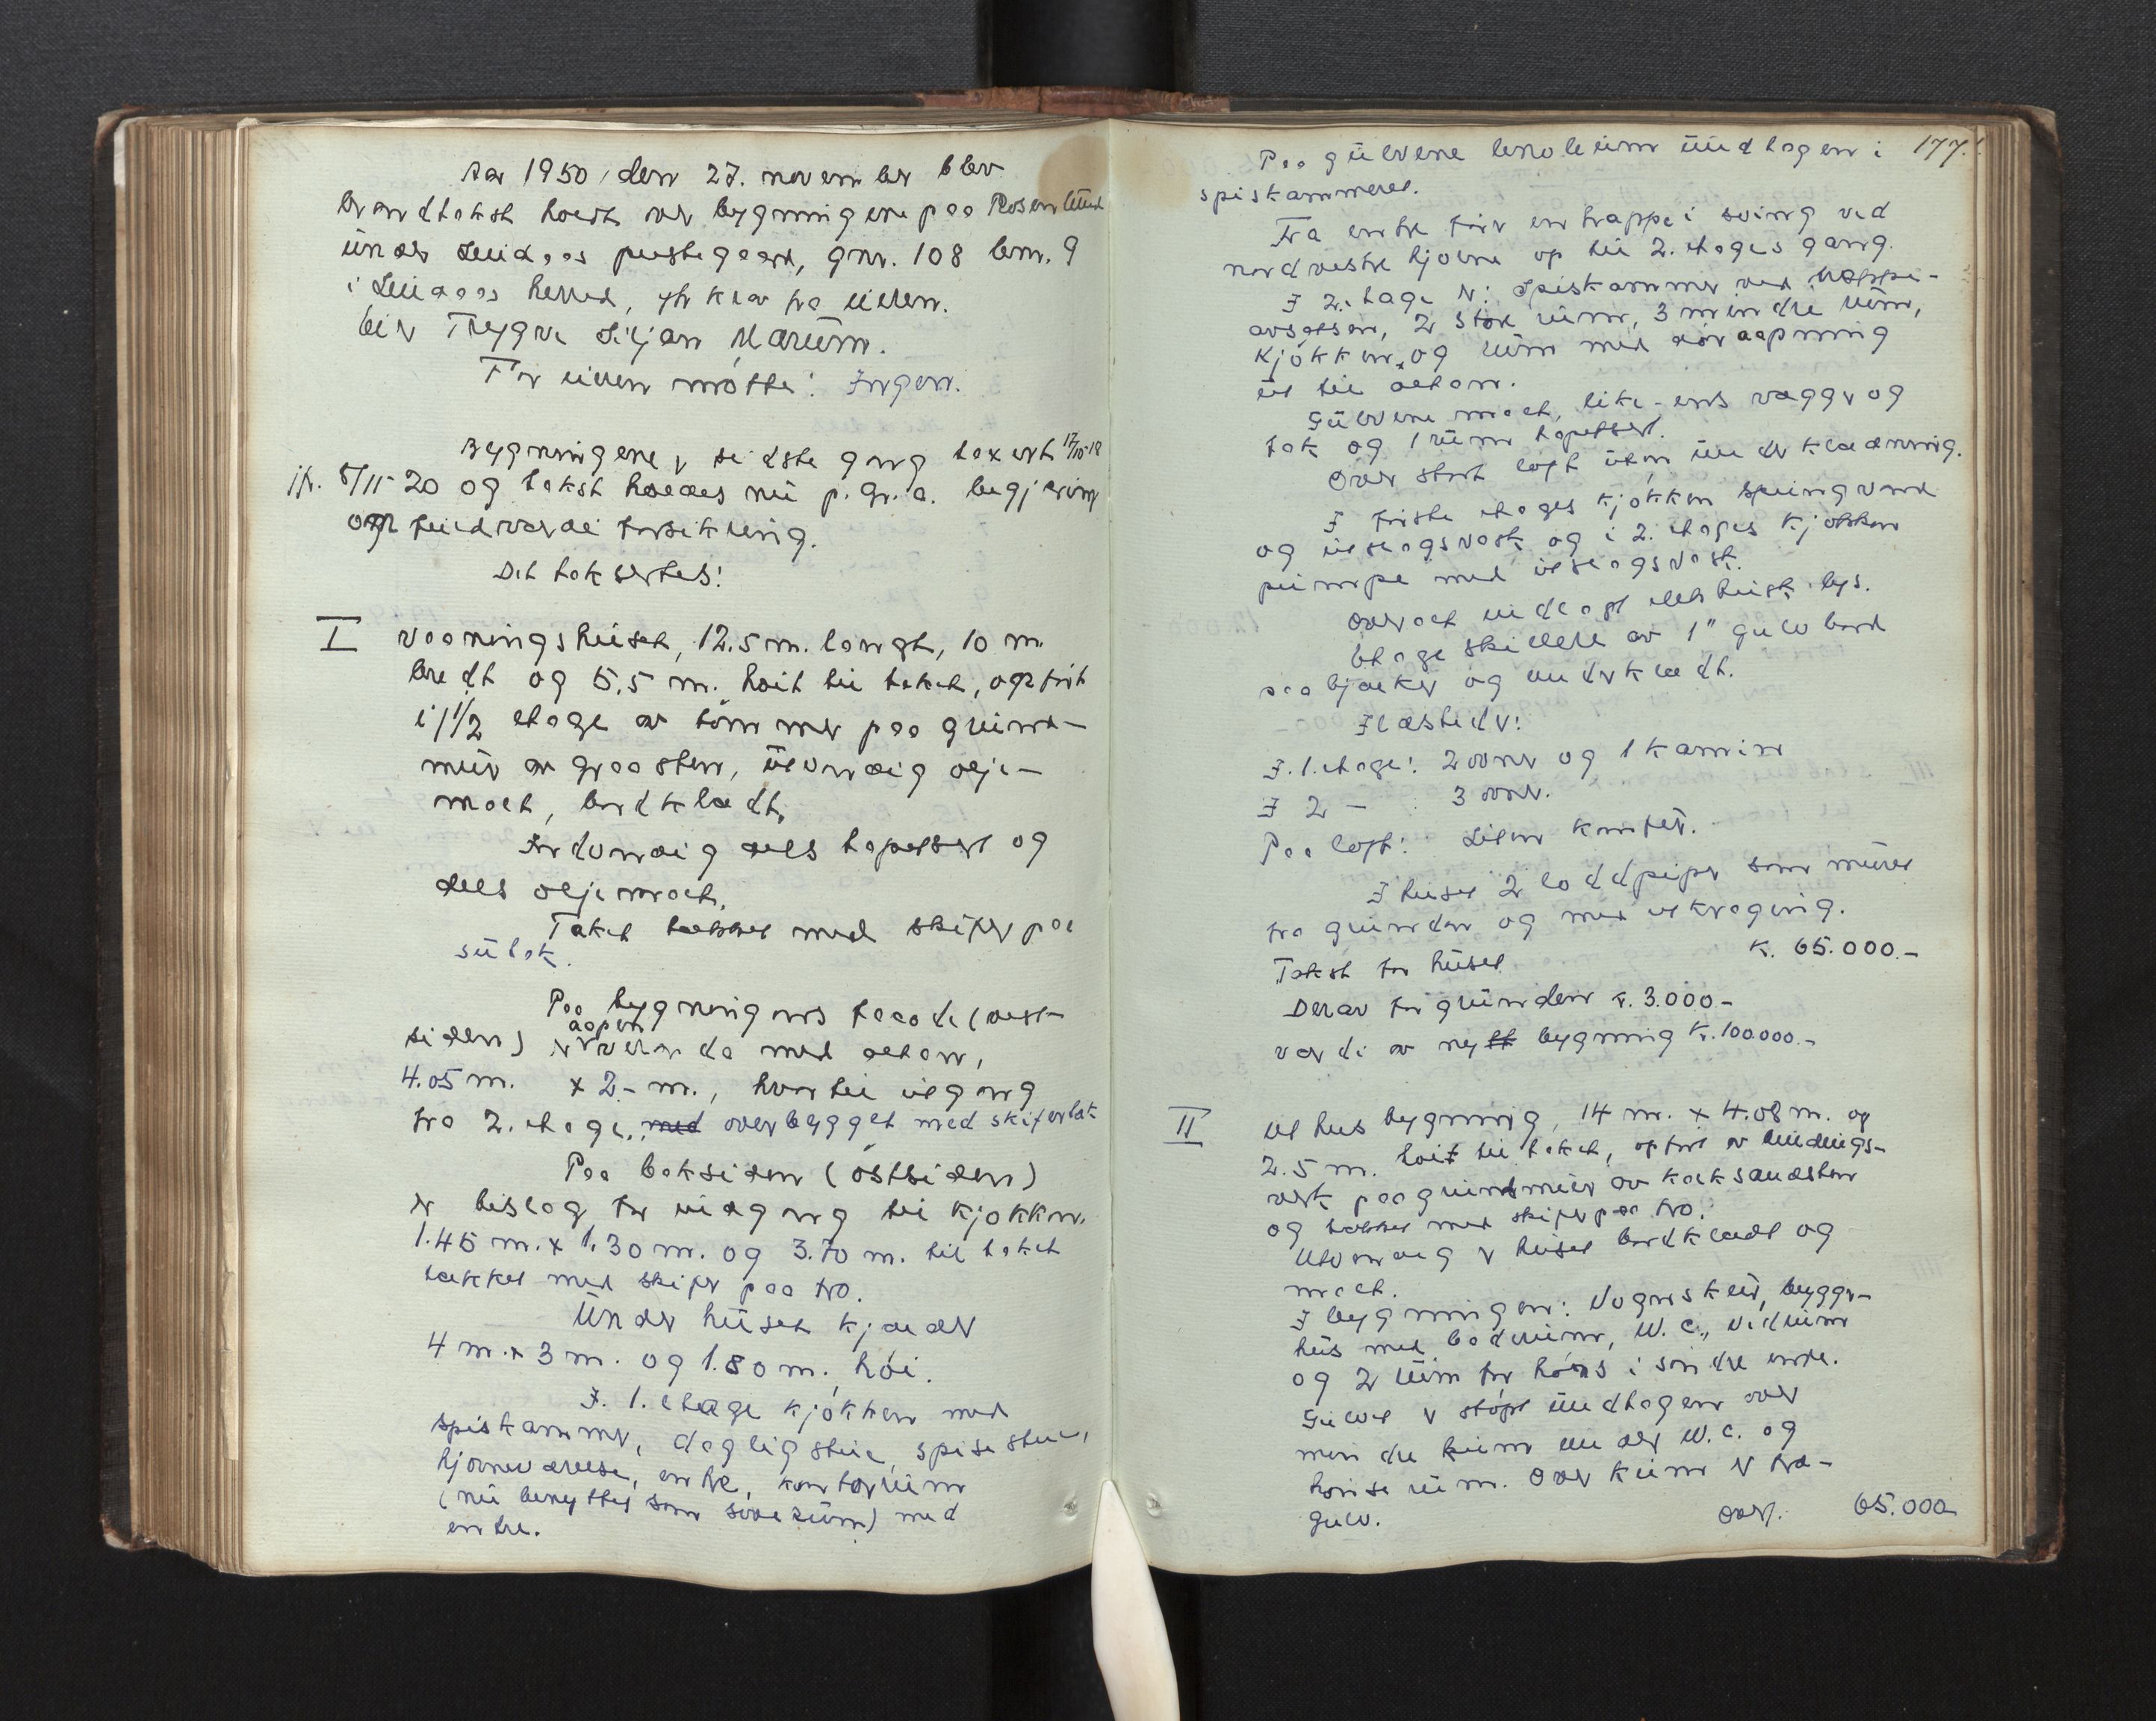 Aar 1950, den 27. november blev
brandtakst holdt over bygningene paa Rosenlund
under Lindaas prestegaard, gnr. 108 bnr. 9
i Lindaas herred,
Trygve Siljan Marum.
For eieren møtte: Ingen.
Bygningene er sidste gang taxert 17/10-18
jfr. 5/11-20 og takst holdes nu p. gr. a. begjæring
om fuldverdi forsikring.
Det taksertes:
I Vaaningshuset, 12.5 m. langt, 10 m.
bredt og 5.5 m. høit til taket, opført
i 1 1/2 etage av tømmer paa grund-
mur av graasten, utvendig olje-
malt, bordklædt.
Indvendig dels tapetsert og
dels oljemalt.
Taket tækket med skifer paa
sutak.
Paa bygningens facade (vest-
siden) er aapen veranda med altan,
4.05 m. x 2.- m., hvortil utgang
fra 2. etage, med overbygget med skifertak
Paa baksiden (østsiden)
er bislag for indgang til kjøkken.
1.45 m. x 1.30 m. og 3.70 m. til taket
tækket med skifer paa tro.
Under huset kjælder
4 m. x 3 m. og 1.80 m. høi.
I. 1. etage kjøkken med
spiskammer, dagligstue, spisestue,
hjørneværelse, entre, kontorrum
(nu benyttes som soverum) med
entre.
177.
Paa gulvene linoleum undtagen i
spiskammeret.
Fra entre fører en trappe i sving ved
nordvestre hjørne op til 2. etages gang.
I 2. etage er: Spiskammer ved trappe-
avsatsen, 2 store rum, 3 mindre rum,
kjøkken, og rum med døraapning
ut til altan.
Gulvene malt, like-ens vægger og
tak og 1 rum tapetsert.
Over stort loft uten underklædning.
I første etages kjøkken springvand
og utslagsvask og i 2. etages kjøkken
pumpe med utslagsvask.
Overalt indlagt elektrisk lys.
Etage skillere av 1" gulvbord
paa bjælker og underklædt.
Ildsteder:
I. 1. etage: 2 ovner og 1 kamin
I 2 — : 3 ovner.
Paa loft: Liten komfur.
I huset 2 loddpiper som murer
fra grunden og med utkraging.
Takst for huset K. 65.000.-
Derav for grunden K. 3.000-
Verdi av ny bygning K. 100.000.-
II Uthusbygning, 14 m. x 4.08 m. og
2.5 m. høit til taket, opført av bindings-
verk paa grundmur av kalksandsten
og tækket med skifer paa tro.
Utvendig er huset bordklædt og
malt.
I bygningen: Vognskur, bygger-
hus med baderum, W.C., vedrum
og 2 rum for høns i søndre ende.
Gulvet er støpt undtagen over
mindre rum under W.C. og
hønserum. Over rum er tre-
gulv.
Overf. 65.000